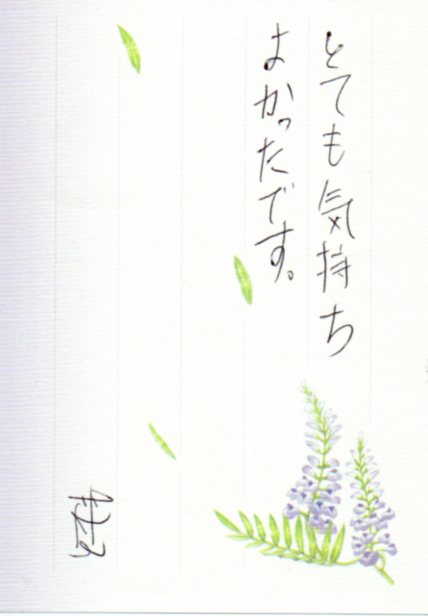 とても気持ち
よかったです。